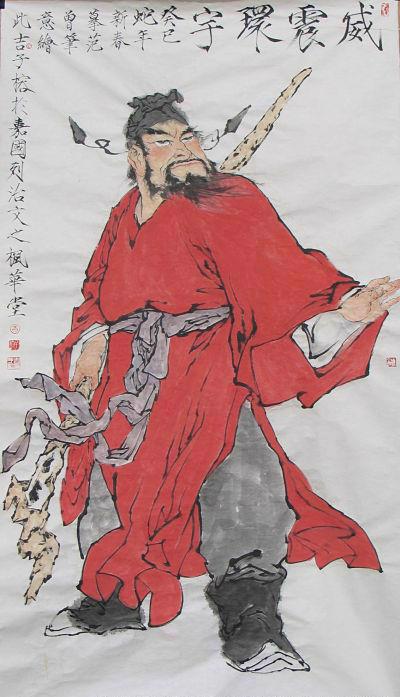 威震環宇
癸巳
蛇年
新春
摹范
曾筆
意繪
此吉子榕於嘉國列治文之楓華堂